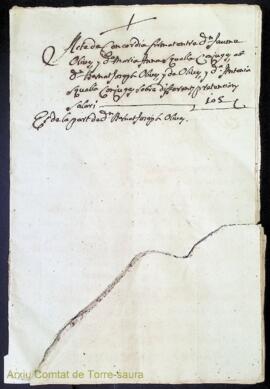 Acte de Concordia firmat entre Dⁿ Jaume
Olives y Dª Maria Anna Squella Conjuges ab
Dⁿ Bernat Joseph Olives y de Olives, y Dª Antonia
Squella Conjuges sobre differents pretencions
Salari 10 S
Es de la part de dⁿ Bernat Joseph Olives.
Arxiu Comtat de Torre-saura